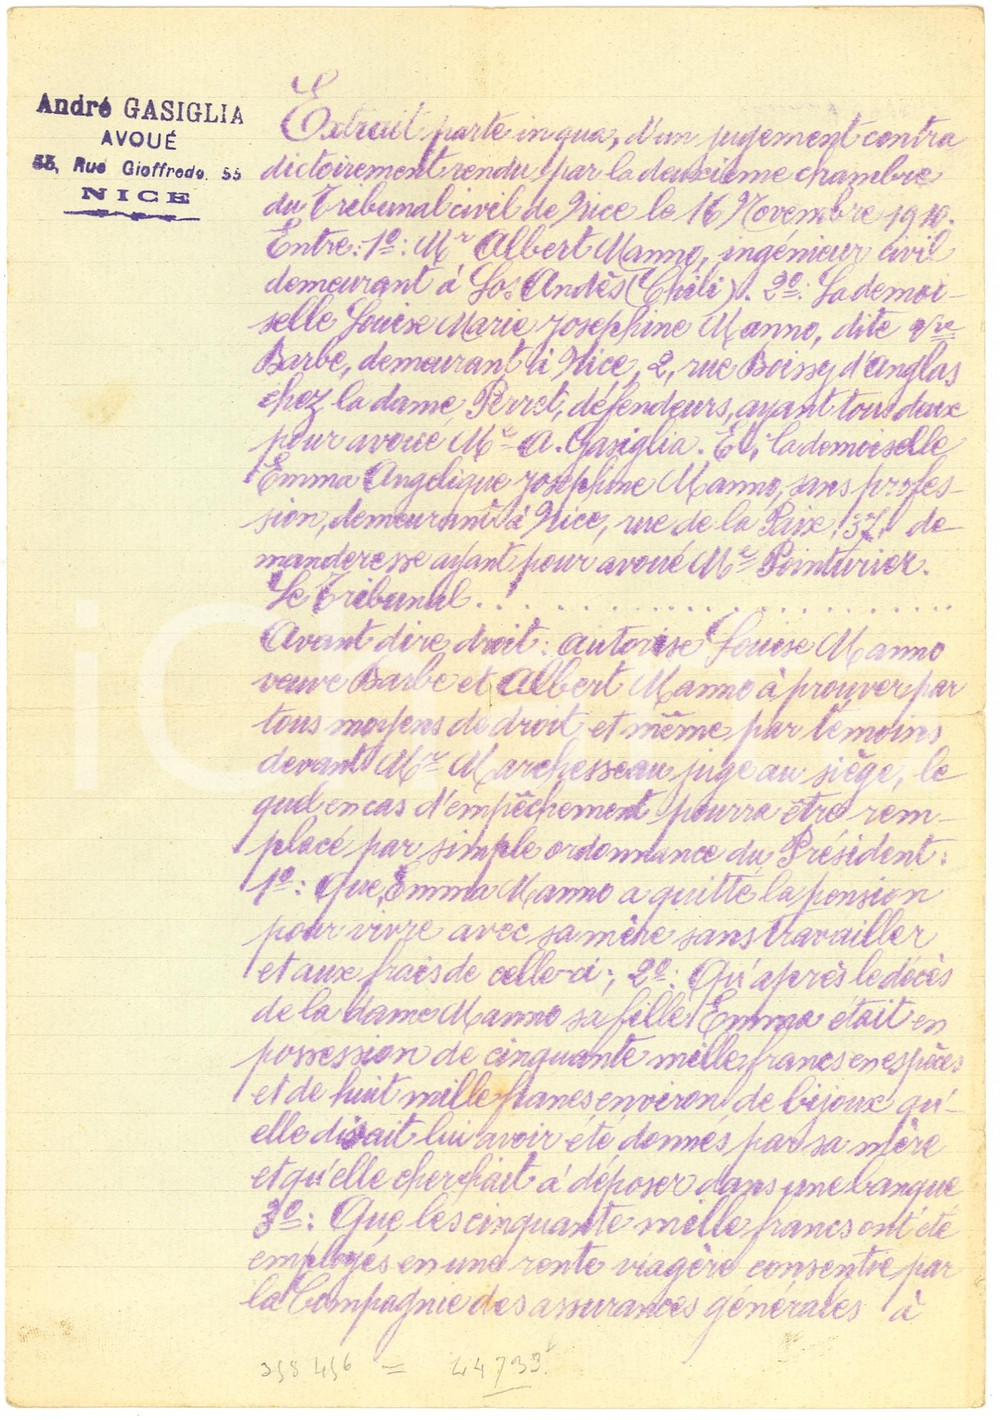 André GASIGLIA
AVOUÉ
55, Rue Gioffredo, 55
NICE
Extrait parte in qua, d'un jugement contra
dictoirement rendu par la deuxième chambre
du Tribunal civil de Nice le 16 Novembre 1910.
Entre: 1º: Mr Albert Manno, ingénieur civil
demeurant à Los Andès (Chili). 2º: La demoi-
selle Louise Marie Josephine Manno, dite Vve
Barbe, demeurant à Nice, 2, rue Boissy d'Anglas
chez la dame Perret, défendeurs, ayant tous deux
pour avoué Me A. Gasiglia. Et, la demoiselle
Emma Angelique Josephine Manno, sans profes-
sion, demeurant à Nice, rue de la Paix, 37, de-
manderesse ayant pour avoué Me Pointurier.
Le Tribunal. . . . . . . . . . . . . . . . . . .
Avant dire droit: autorise Louise Manno
veuve Barbe et Albert Manno à prouver par
tous moyens de droit et même par témoins
devant Mr Marchesseau juge au siège, le
quel en cas d'empêchement pourra être rem-
placé par simple ordonnance du Président:
1º: Que Emma Manno a quitté la pension
pour vivre avec sa mère sans travailler
et aux frais de celle-ci; 2º: Qu'après le décès
de la dame Manno sa fille Emma était en
possession de cinquante mille francs en espèces
et de huit mille francs environ de bijoux qu'-
elle disait lui avoir été donnés par sa mère
et qu'elle cherchait à déposer dans une banque
3º: Que les cinquante mille francs ont été
employés en une rente viagère consentie par
la Compagnie des assurances générales à
358 456 = 44733
iCharta